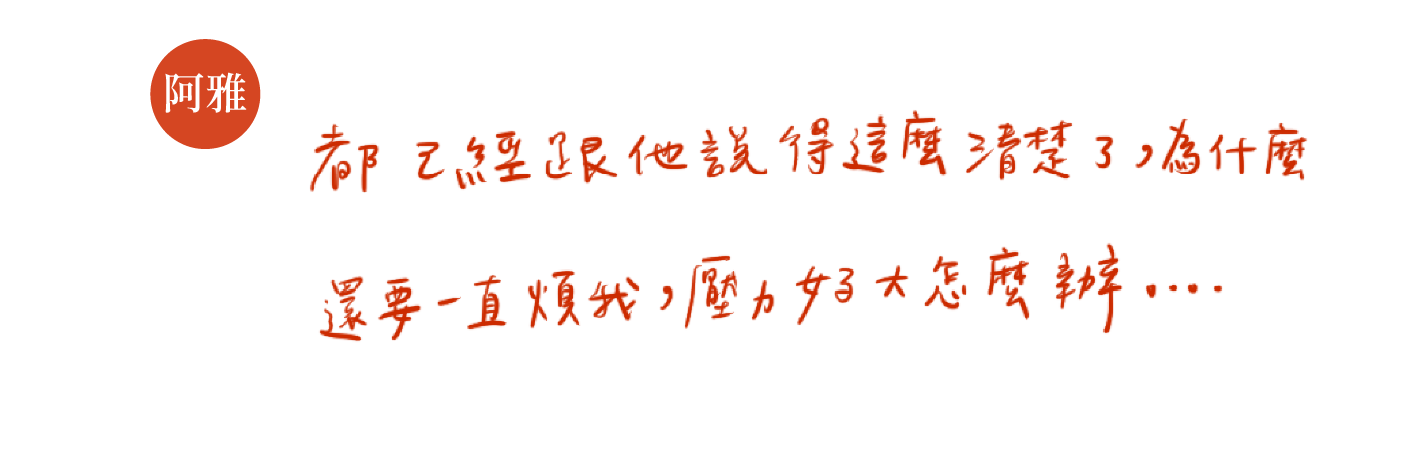 阿雅
都已經跟他說得這麼清楚了,為什麼
還要一直煩我,壓力好大怎麼辦....